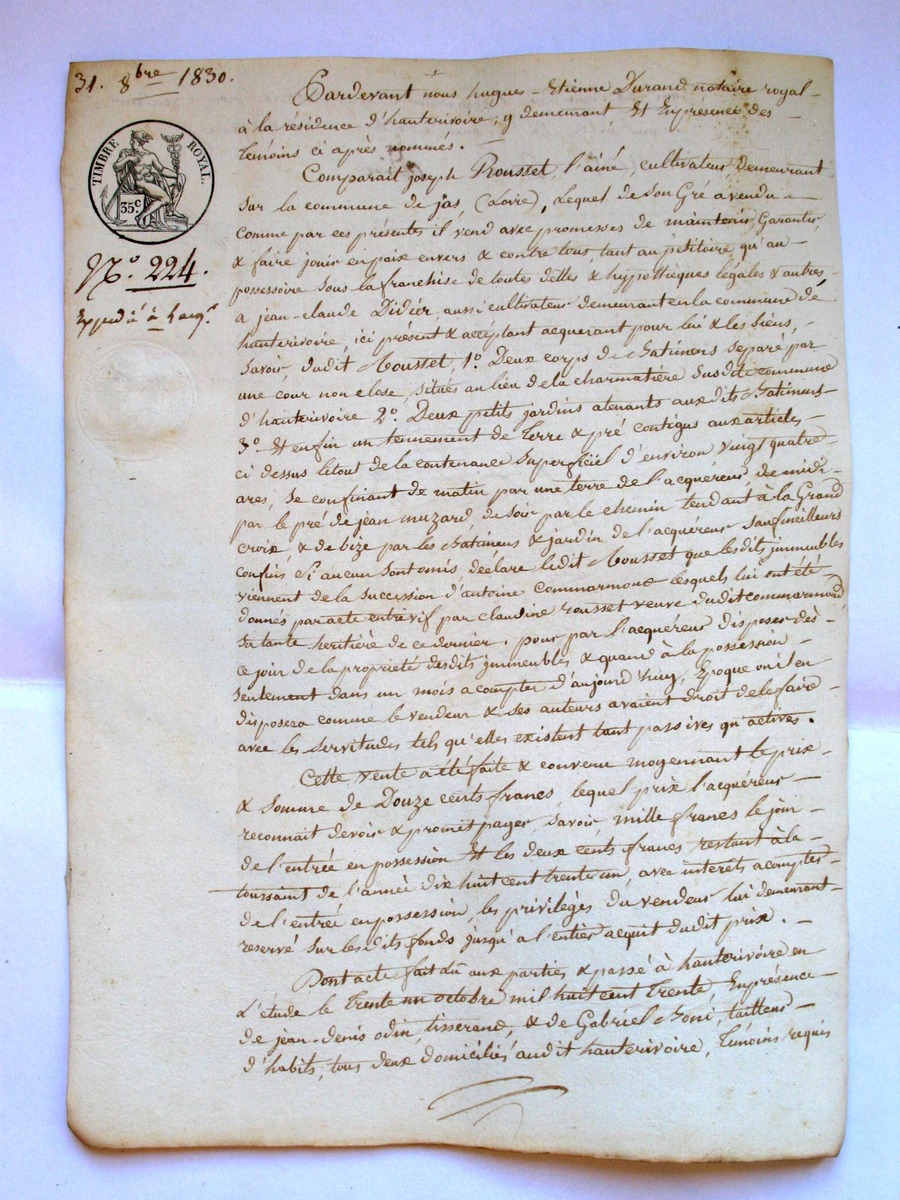 31. 8bre 1830.
TIMBRE ROYAL.
35c
No. 224.
Expédié à l'acqr.
Pardevant nous hugues-Etienne Durand notaire royal
à la résidence d'hauterivoire, y demeurant Et Enprésence des
temoins ci après nommés.
Comparait joseph Rousset, l'ainé, cultivateur demeurant
sur la commune de jas, (Loire), Lequel de son Gré a vendu
comme par ces présentes il vend avec promesses de maintenir, Garantir,
& faire jouir en paix envers & contre tous, tant au petitoire qu'au
possessoire sous la franchise de toutes dettes & hypothèques légales & autres
a jean-claude Didier, aussi cultivateur demeurant en la commune de
hauterivoire, ici présent & acceptant acquerant pour lui & les siens,
savoir, dudit Rousset, 1o. Deux corps de Batimens separé par
une cour non close, situés au lieu de la charmatière susdite commune
d'hauterivoire 2o. Deux petits jardins atenants auxdits Batimens
3o. Et enfin un tennement de terre & pré contigus aux articles
ci dessus le tout de la contenance superficiel d'environ vingt quatre
ares, se confinant de matin par une terre de l'acquéreur, de midi
par le pré de jean muzard, de soir par le chemin tendant à la Grand
croix, & de bize par les Batimens & jardin de l'acquéreur sauf meilleurs
confins si aucun sont omis, déclare ledit Rousset que lesdits immeubles
viennent de la succession d'antoine Commarmond lesquels lui ont été
donnés par acte entrevif par claudine rousset veuve dudit commarmond
sa tante heritière de ce dernier. pour par l'acquéreur disposer dès
ce jour de la propriété desdits immeubles & quand à la possession
seulement dans un mois a compter d'aujourd'huy, Epoque ou il en
disposera comme le vendeur & ses auteurs avaient droit de le faire
avec les servitudes tels qu'elles existent tant passives qu'actives.
Cette vente a été faite & convenu moyennant le prix
& somme de Douze cents francs, lequel prix l'acquéreur
reconnait devoir & promet payer, savoir mille francs le jour
de l'entrée en possession Et les deux cents francs restant à la
toussaint de l'année dix huit cent trente un, avec interets a compter
de l'entrée en possession, les privilèges du vendeur lui demeurant
reservé sur lesdits fonds jusqu'a l'entier acquit dudit prix.
Dont acte fait dû aux parties & passé à hauterivoire en
L'étude le trente un octobre mil huit cent trente Enprésence
de jean-denis odin, tisserand, & de Gabriel Boni, tailleur
d'habits, tous deux domiciliés audit hauterivoire, Témoins requis